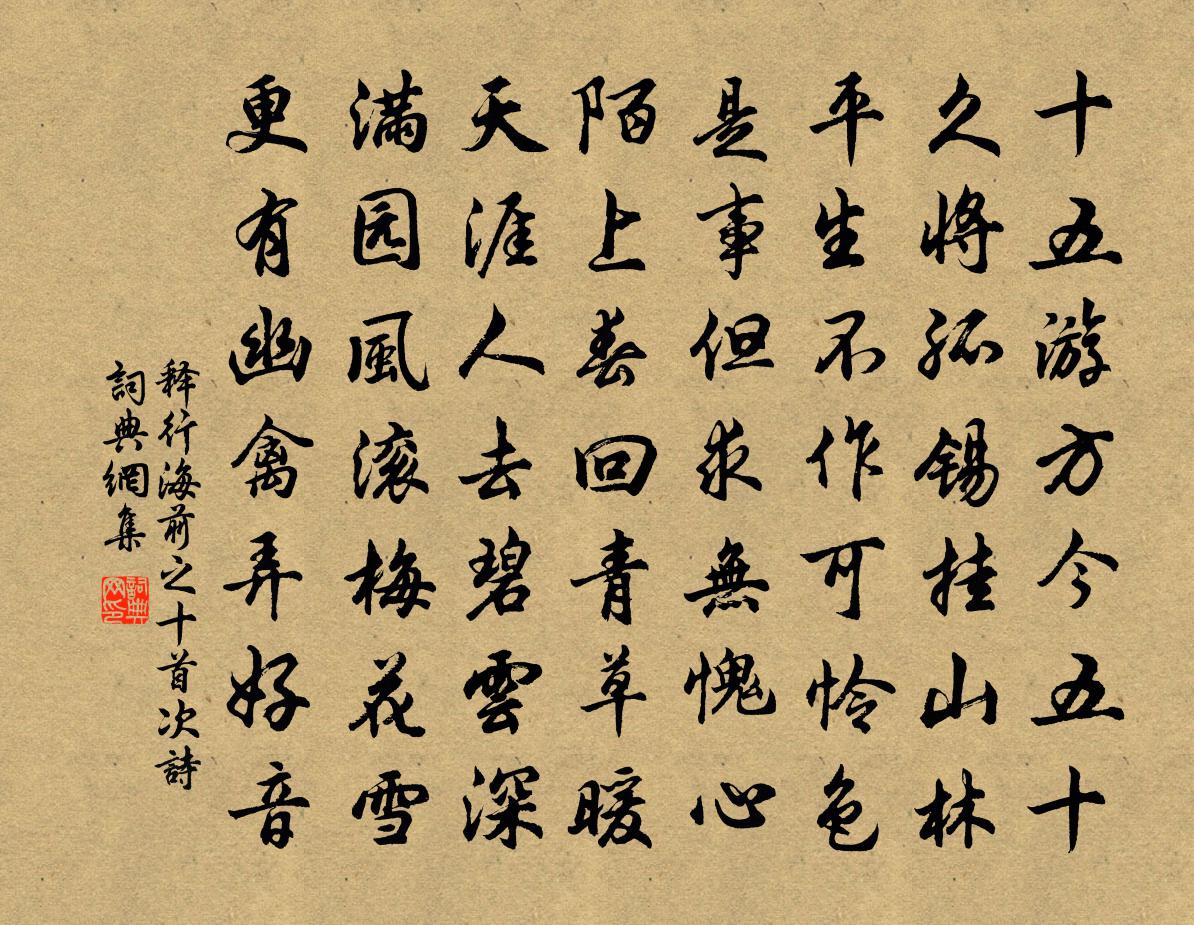 十五游方今五十
久將孤錫挂山林
平生不作可怜色
是事但求無愧心
陌上春回青草暖
天涯人去碧雲深
滿园風滚梅花雪
更有幽禽弄好音
释行海前之十首次詩
詞典網集
詞典网印